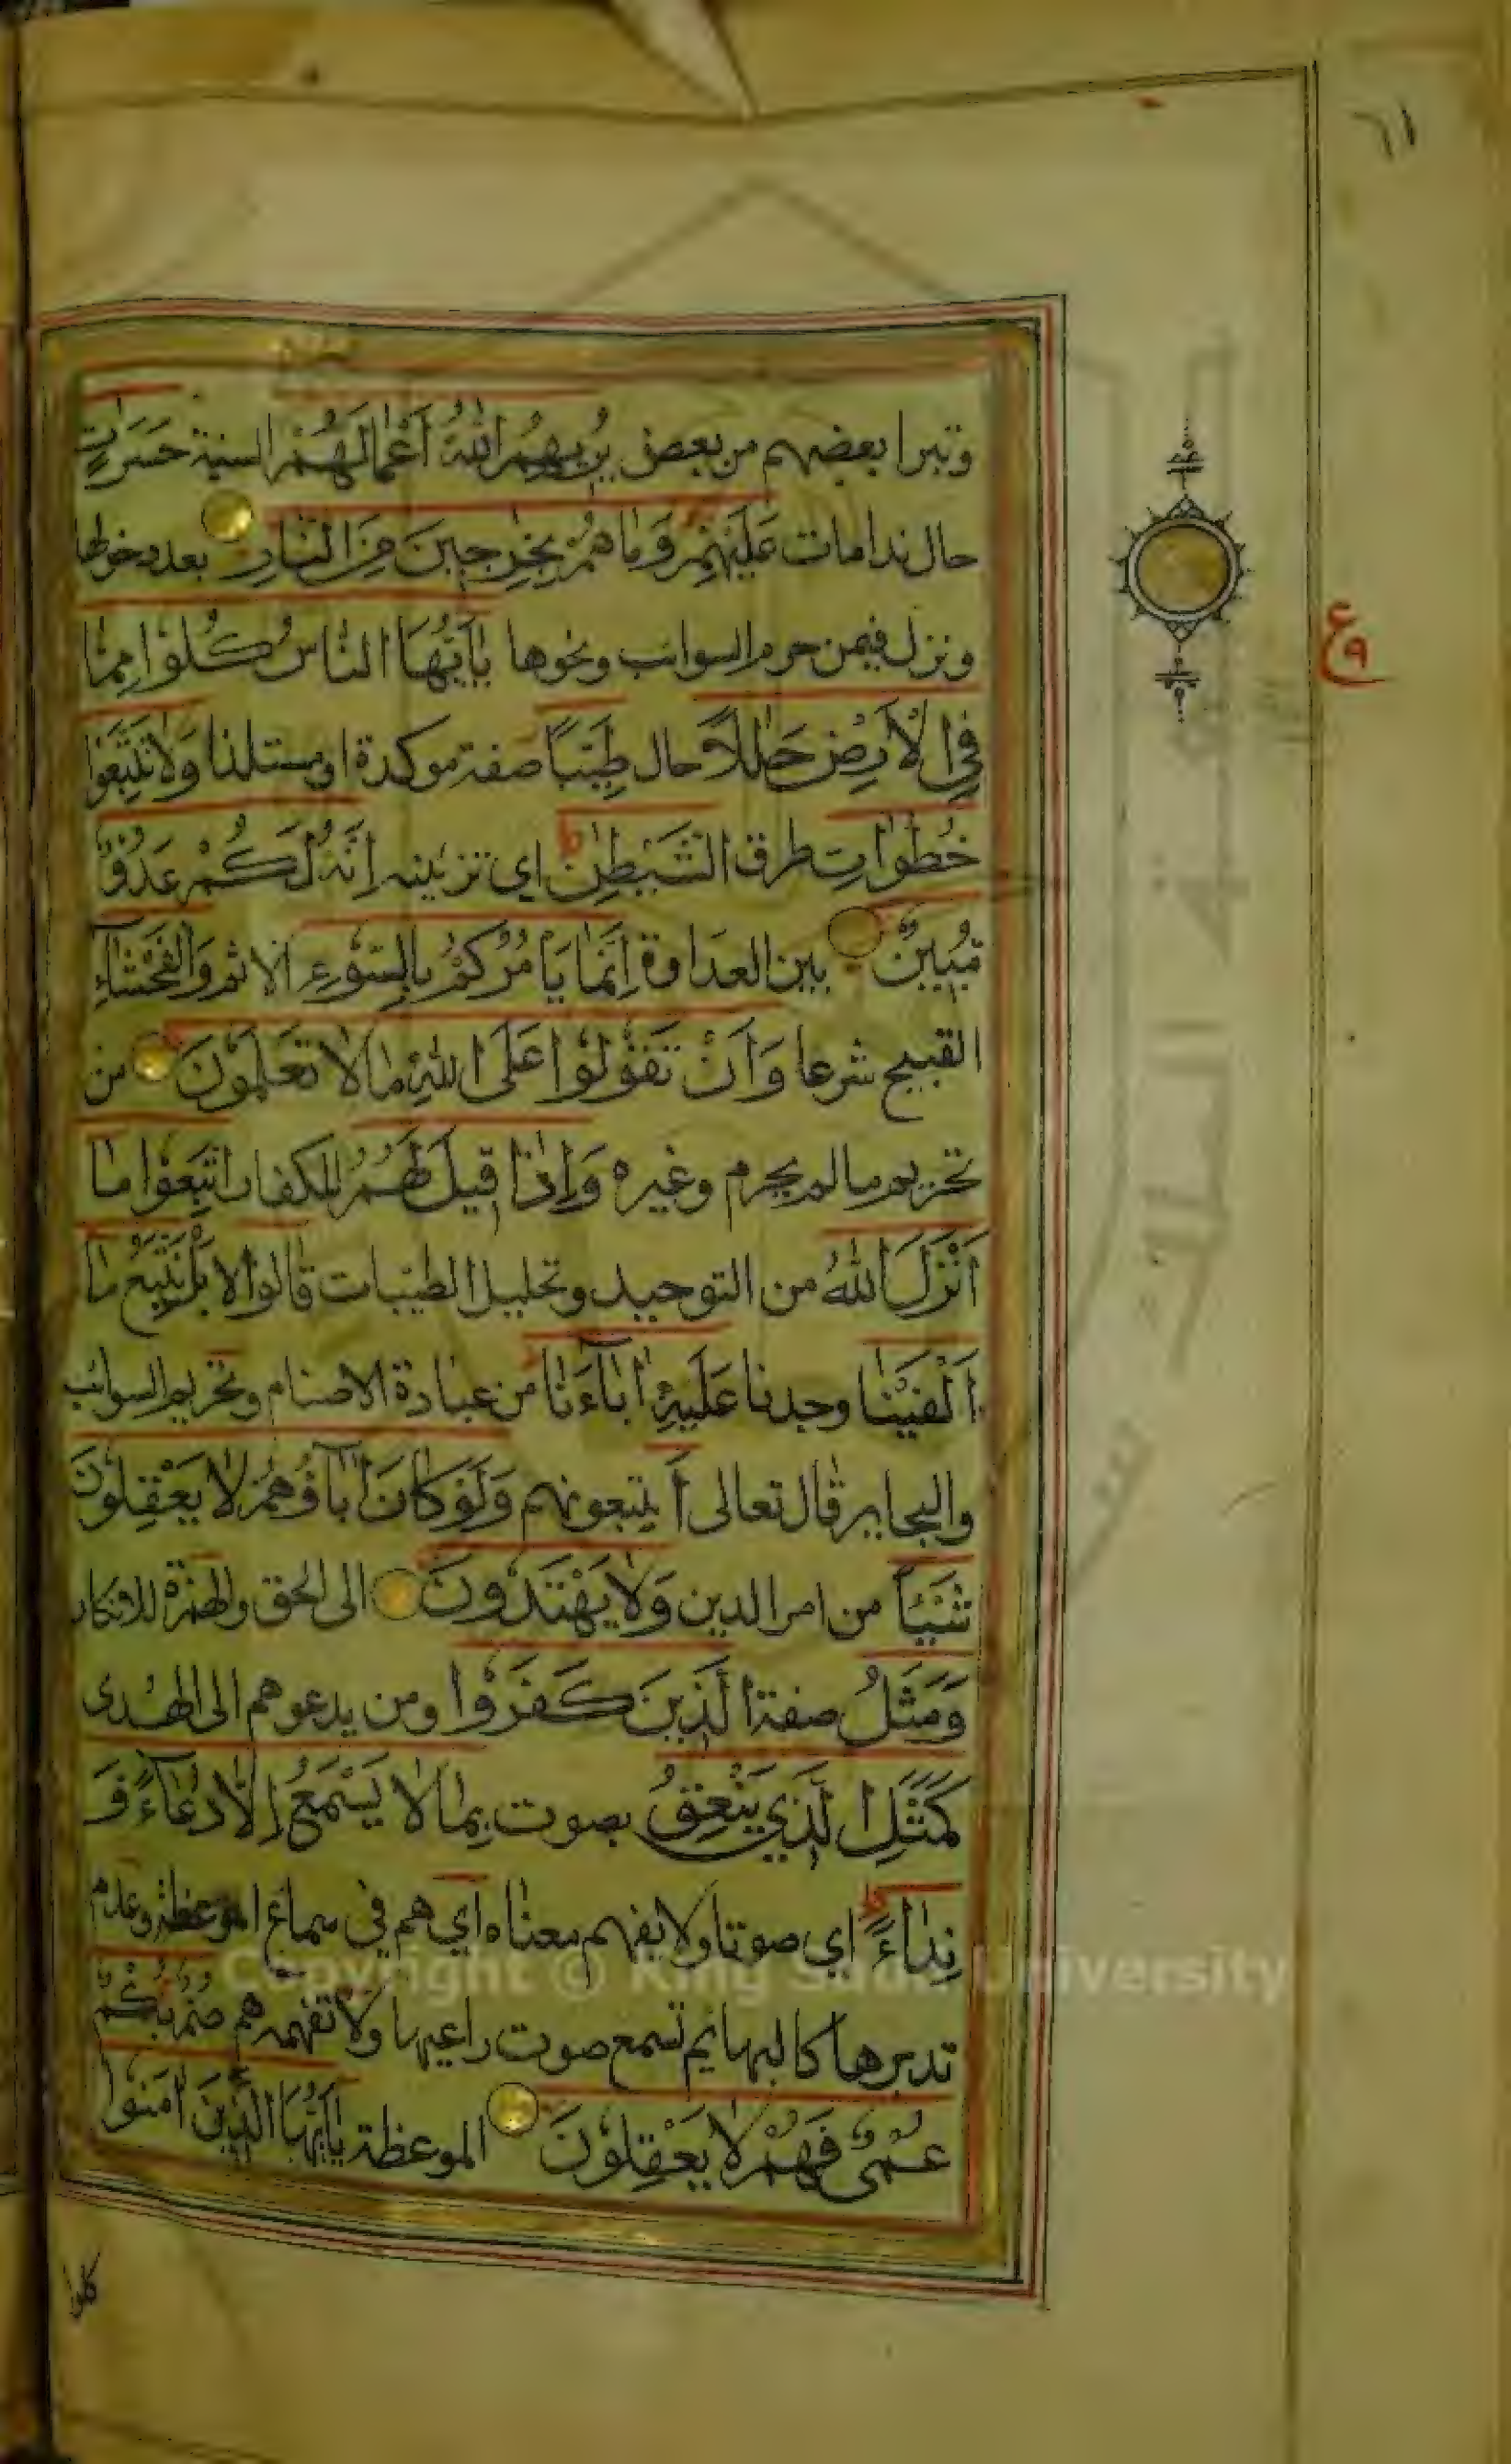 ٦١
وتبرا بعضهم من بعض يُرِيهِمُ اللّٰهُ أَعْمَالَهُمْ السيئة حَسَرَاتٍ
حال ندامات عَلَيْهِمْ وَمَا هُمْ بِخَارِجِينَ مِنَ النَّارِ بعد دخولها
ونزل فيمن حرم السوائب ونحوها يَا أَيُّهَا النَّاسُ كُلُوا مِمَّا
فِي الْأَرْضِ حَلَالًا حال طَيِّبًا صفة موكدة او مستلذا وَلَا تَتَّبِعُوا
خُطُوَاتِ طرق الشَّيْطٰنِ اي تزيينه إِنَّهُ لَكُمْ عَدُوٌّ
مُبِينٌ بين العداوة إِنَّمَا يَأْمُرُكُمْ بِالسُّوءِ الاثم وَالْفَحْشَاءِ
القبيح شرعا وَأَنْ تَقُولُوا عَلَى اللّٰهِ مَا لَا تَعْلَمُونَ من
تحريم ما لم يحرم وغيره وَإِذَا قِيلَ لَهُمُ للكفار اتَّبِعُوا مَا
أَنْزَلَ اللّٰهُ من التوحيد وتحليل الطيبات قَالُوا لا بَلْ نَتَّبِعُ مَا
أَلْفَيْنَا وجدنا عَلَيْهِ آبَاءَنَا من عبادة الاصنام وتحريم السوائب
والبحاير قال تعالى أَ يتبعونهم وَلَوْ كَانَ آبَاؤُهُمْ لَا يَعْقِلُونَ
شَيْئًا من امر الدين وَلَا يَهْتَدُونَ الى الحق والهمزة للانكار
وَمَثَلُ صفة الَّذِينَ كَفَرُوا ومن يدعوهم الى الهدى
كَمَثَلِ الَّذِي يَنْعِقُ بصوت بِمَا لَا يَسْمَعُ إِلَّا دُعَاءً وَ
نِدَاءً اي صوتا ولا يفهم معناه اي هم في سماع الموعظة وعدم
تدبرها كالبهايم تسمع صوت راعيها ولا تفهمه هم صُمٌّ بُكْمٌ
عُمْيٌ فَهُمْ لَا يَعْقِلُونَ الموعظة يَا أَيُّهَا الَّذِينَ آمَنُوا
كلوا
Copyright © King Saud University